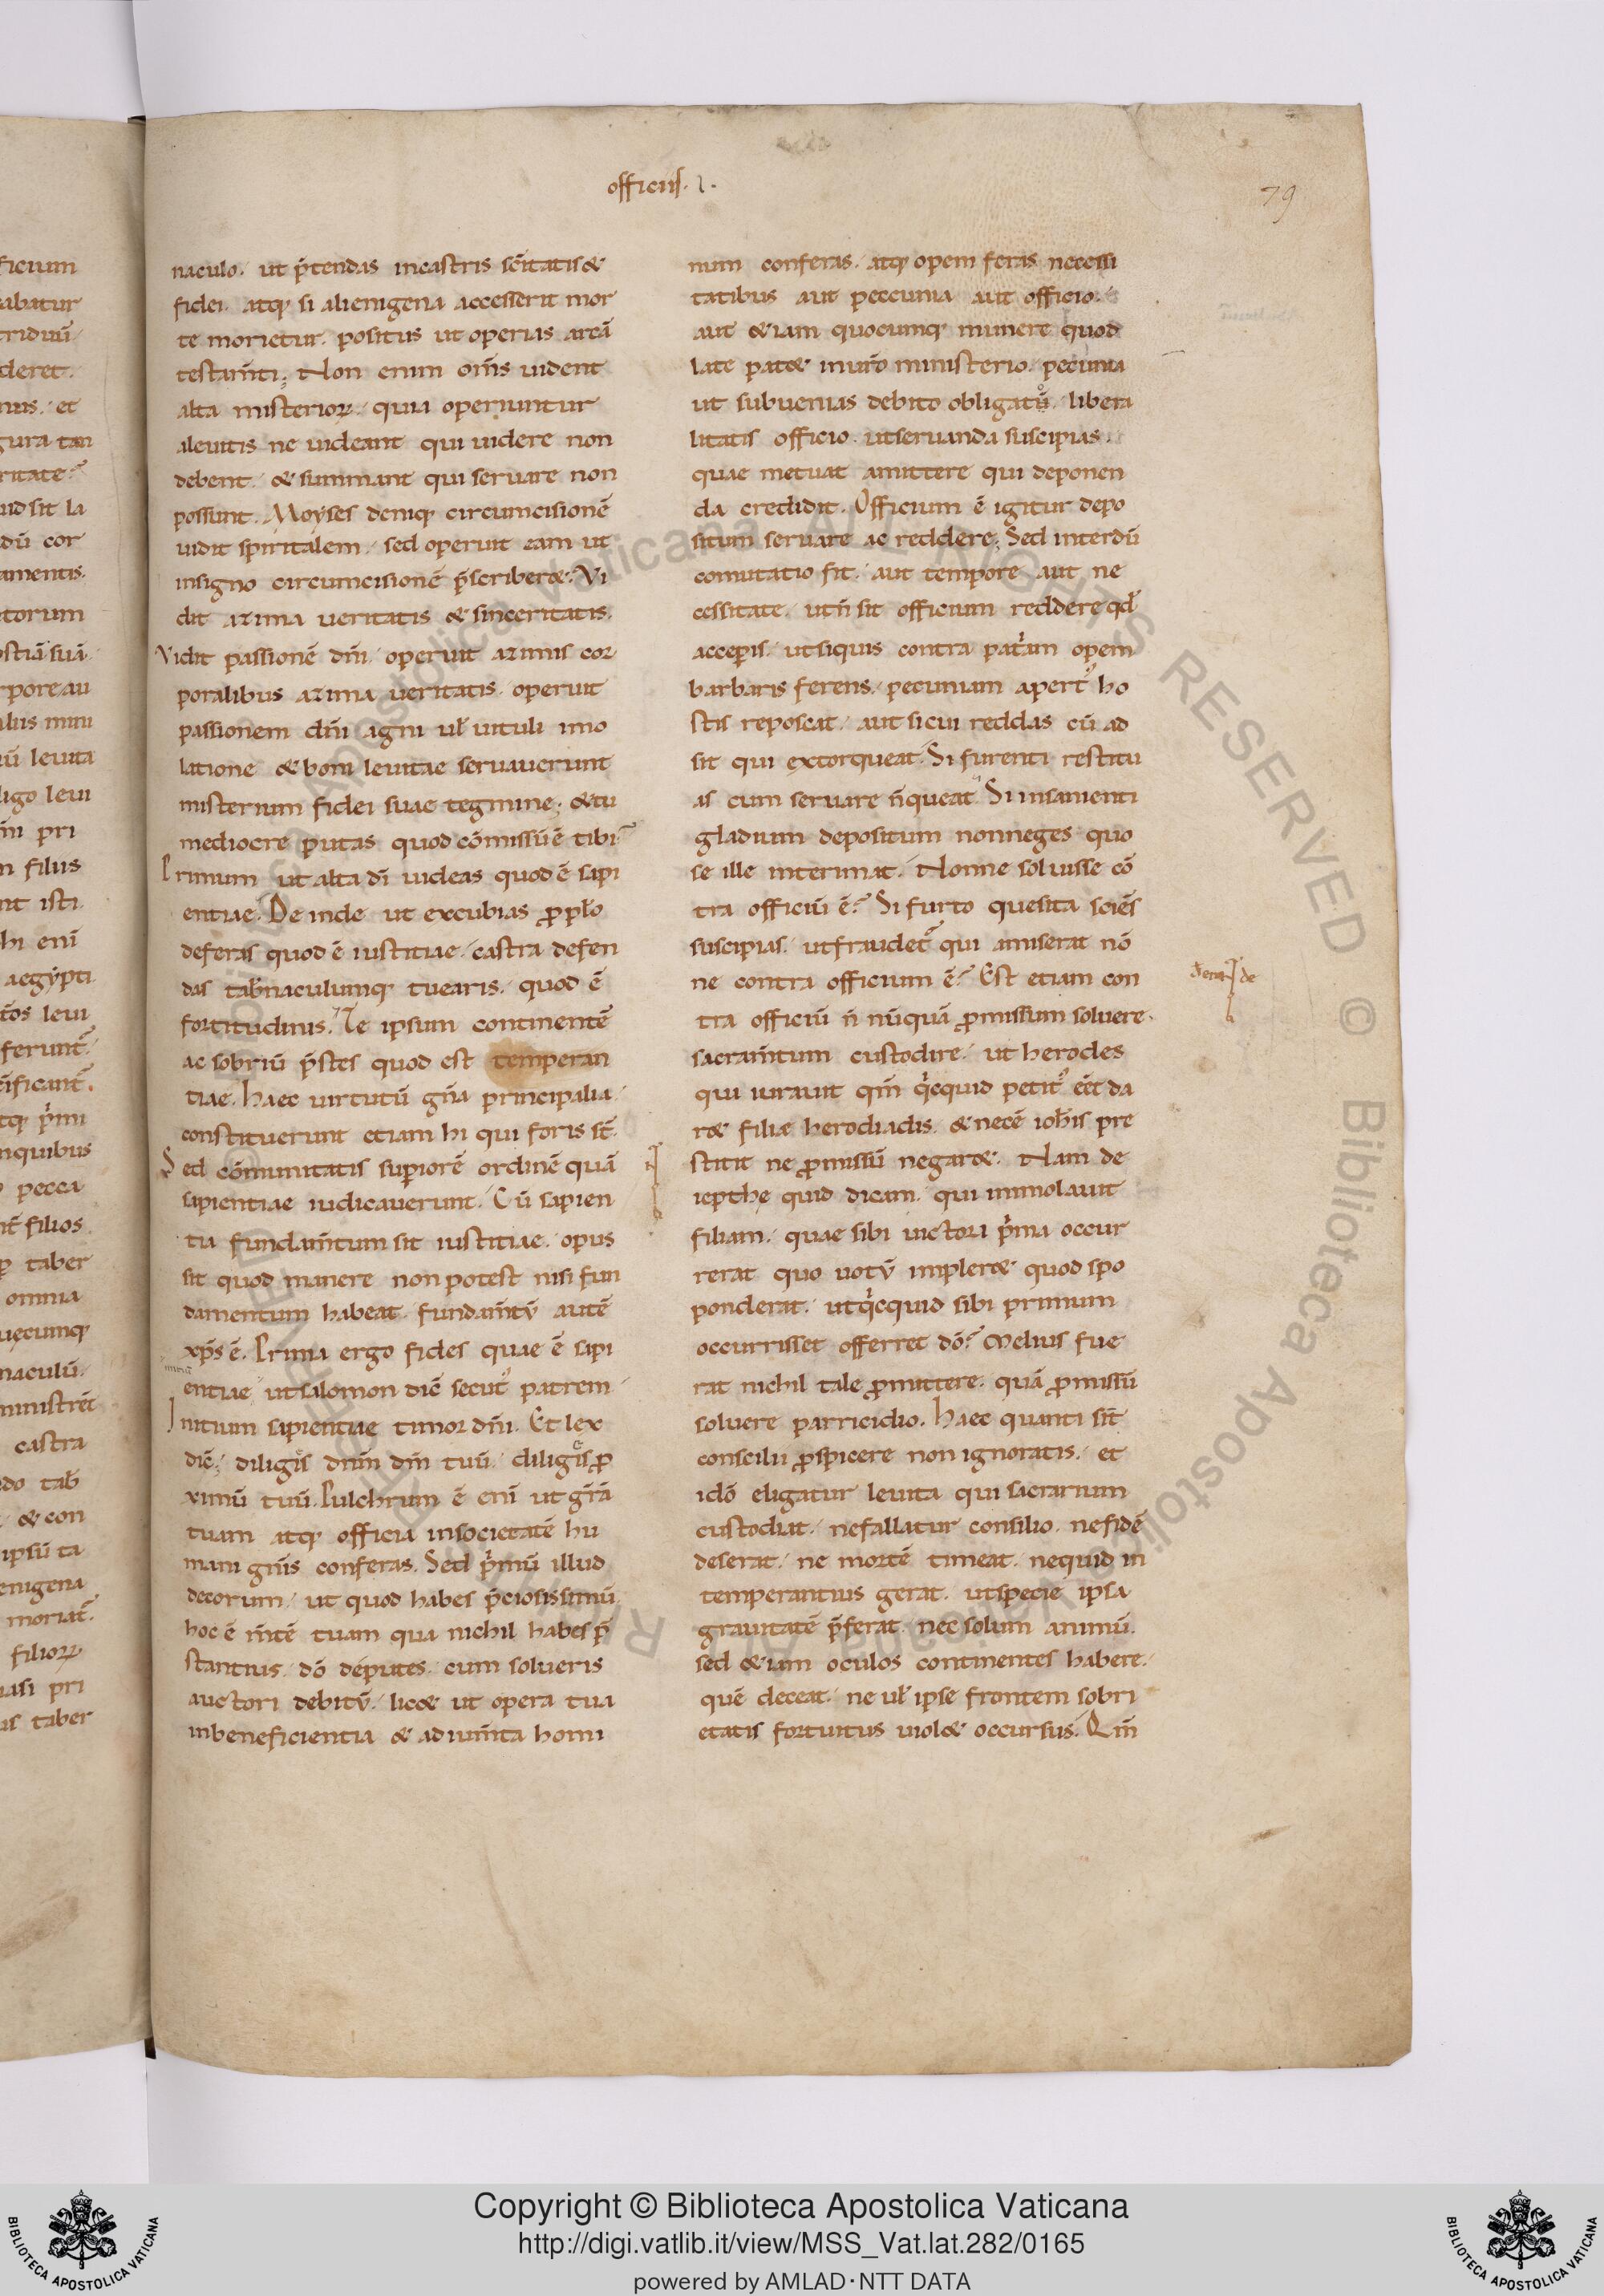 officiis. I.
79
naculo. ut p̄tendas incastris sc̄itatis &
fidei. atq; si alienigena accesserit mor
te morietur. positus ut operias arcā
testam̄ti; Non enim om̄s uident
alta misterioꝝ. quia operiuntur
aleuitis ne uideant qui uidere non
debent. & summant qui seruare non
possunt. Moyses deniq; circumcisionē
uidit spiritalem. sed operuit eam ut
insigno circumcisionē p̄scriber&. Vi
dit azima ueritatis & sinceritatis.
Vidit passionē dn̄i. operuit azimis cor
poralibus azima ueritatis. operuit
passionem dn̄i agni ul̄ uituli imo
latione & boni leuitae seruauerunt
misterium fidei suae tegmine. & tu
mediocre putas quod cōmissū ē tibi?
Primum ut alta dī uideas quod ē sapi
entiae. De inde ut excubias ꝓ pplo
deferas quod ē iustitiae. castra defen
das tab̄naculumq; tuearis. quod ē
fortitudinis. Te ipsum continentē
ac sobriū p̄stes quod est temperan
tiae. Haec uirtutū gn̄a principalia
constituerunt etiam hi qui foris st̄.
Sed cōmunitatis superiorē ordinē quā
sapientiae iudicauerunt. Cū sapien
tia fundam̄tum sit iustitiae. opus
sit quod manere non potest nisi fun
damentum habeat. fundam̄tū autē
xp̄s ē. Prima ergo fides quae ē sapi
entiae ut salomon dic̄ secut' patrem
Initium sapientiae timor dn̄i. Et lex
dic̄; diliges dn̄m dm̄ tuū. diliges ꝓ
ximū tuū. Pulchrum ē enī ut gr̄ā
tuam atq; officia insocietatē hu
mani gn̄is conferas. Sed p̄mū illud
decorum. ut quod habes p̄ciosissimū
hoc ē m̄tē tuam qua nichil habes p̄
stantius. dō deputes. cum solueris
auctori debitū. lic& ut opera tua
inbeneficientia & adium̄ta homi
num conferas. atq; opem feras necessi
tatibus aut peccunia aut officio.
aut &iam quocumq; munere quod
late pat& inur̄o ministerio. pecunia
ut subuenias debito obligatū. libera
litatis officio. utseruanda suscipias.
quae metuat amittere qui deponen
da credidit. Officium ē igitur depo
situm seruare ac reddere. Sed interdū
comutatio fit. aut tempore aut ne
cessitate. utn̄ sit officium reddere qd̄
acceperis. utsiquis contra patriam opem
barbaris ferens. pecuniam apert' ho
stis reposcat. aut sicui reddas cū ad
sit qui extorqueat. Si furenti restitu
as cum seruare n̄queat. Si insanienti
gladium depositum nonneges quo
se ille interimat. Nonne soluisse cō
tra officiū ē? Si furto quesita sciēs
suscipias. utfraudet' qui amiserat nō
ne contra officium ē? Est etiam con
tra officiū n̄ nūquā ꝓmissum soluere.
sacram̄tum custodire. ut herodes
qui iurauit qm̄ q̇cquid petit' eēt da
r& filiæ herodiadis. & necē ioh̄is pre
stitit ne ꝓmissū negar&. Nam de
iepthe quid dicam. qui immolauit
filiam. quae sibi uictori p̄ma occur
rerat quo uotū impler& quod spo
ponderat. utq̇cquid sibi primum
occurrisset offerret dō? Melius fue
rat nichil tale ꝓmittere. quā ꝓmissū
soluere parricidio. Haec quanti sit
conscilii ꝓspicere non ignoratis. et
idō eligatur leuita qui sacrarium
custodiat. nefallatur consilio. nefidē
deserat. ne mortē timeat. nequid in
temperantius gerat. utspecie ipsa
grauitatē p̄ferat. nec solum animū.
sed &iam oculos continentes habere.
quē deceat. ne ul̄ ipse frontem sobri
etatis fortuitus uiol& occursus. Qm̄
ficium
abatur
triduū
deret.
nus. et
gura tan
ritate?
uid sit la
dū cor
amentis.
torum
ostiā suā
rpore au
alius mini
iū leuita
ligo leui
m̄i pri
n filius
nt isti
hi enī
aegypti
t̄os leui
ferunt.
nquibus
pecca
filios
taber
omnia
uęcumq;
naculū.
ministrēt
castra
do tab̄
& con
ipsū ta
enigena
moriat.
filioꝝ
uasi pri
us taber
© Biblioteca Apostolica Vaticana ALL RIGHTS RESERVED
Copyright © Biblioteca Apostolica Vaticana
http://digi.vatlib.it/view/MSS_Vat.lat.282/0165
powered by AMLAD·NTT DATA
BIBLIOTECA APOSTOLICA VATICANA
BIBLIOTECA APOSTOLICA VATICANA